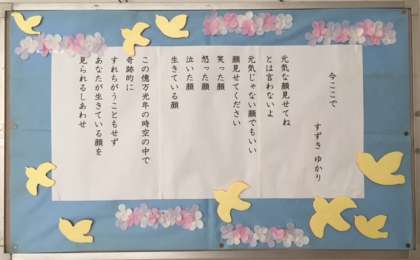 今ここで
すずき ゆかり
元気な顔見せてね
とは言わないよ
元気じゃない顔でもいい
顔見せてください
笑った顔
怒った顔
泣いた顔
生きている顔
この億万光年の時空の中で
奇跡的に
すれちがうこともせず
あなたが生きている顔を
見られるしあわせ